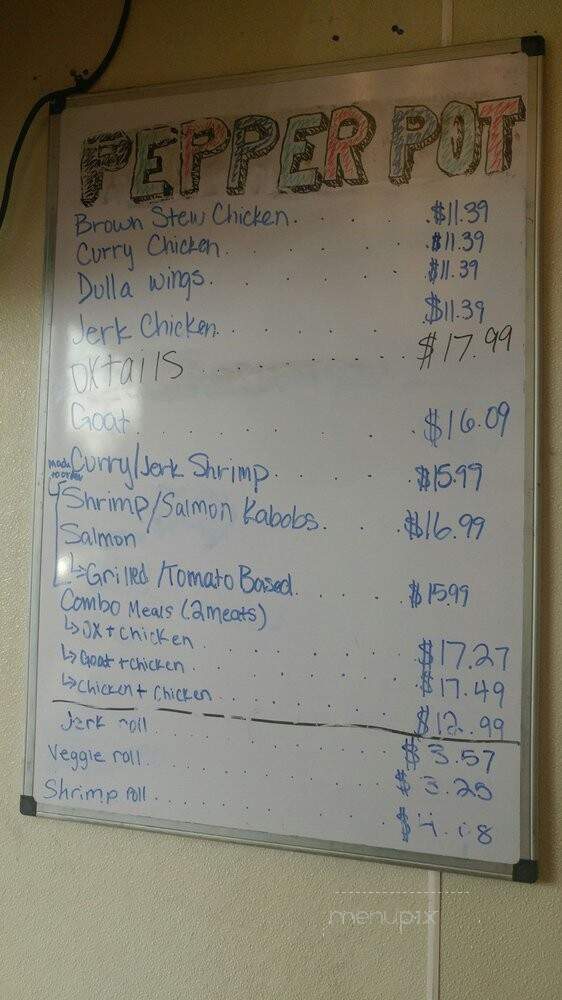 PEPPER POT
Brown Stew Chicken. . . . . .$11.39
Curry Chicken. . . . . .$11.39
Dulla wings. . . . . $11.39
Jerk Chicken. . . . . $11.39
Oxtails . . . . . . . $17.99
Goat. . . . . . $16.09
made to order
Curry/Jerk Shrimp. . . . $15.99
Shrimp/Salmon Kabobs. . . . $16.99
Salmon
↳Grilled /Tomato Based. . . . . $15.99
Combo Meals (2 meats)
↳OX + Chicken . . . . . $17.27
↳Goat + Chicken . . . . . $17.49
↳Chicken + Chicken . . . . . $12.99
Jerk roll . . . . . $3.57
Veggie roll . . . . . $3.25
Shrimp roll . . . . . $4.18
menupix